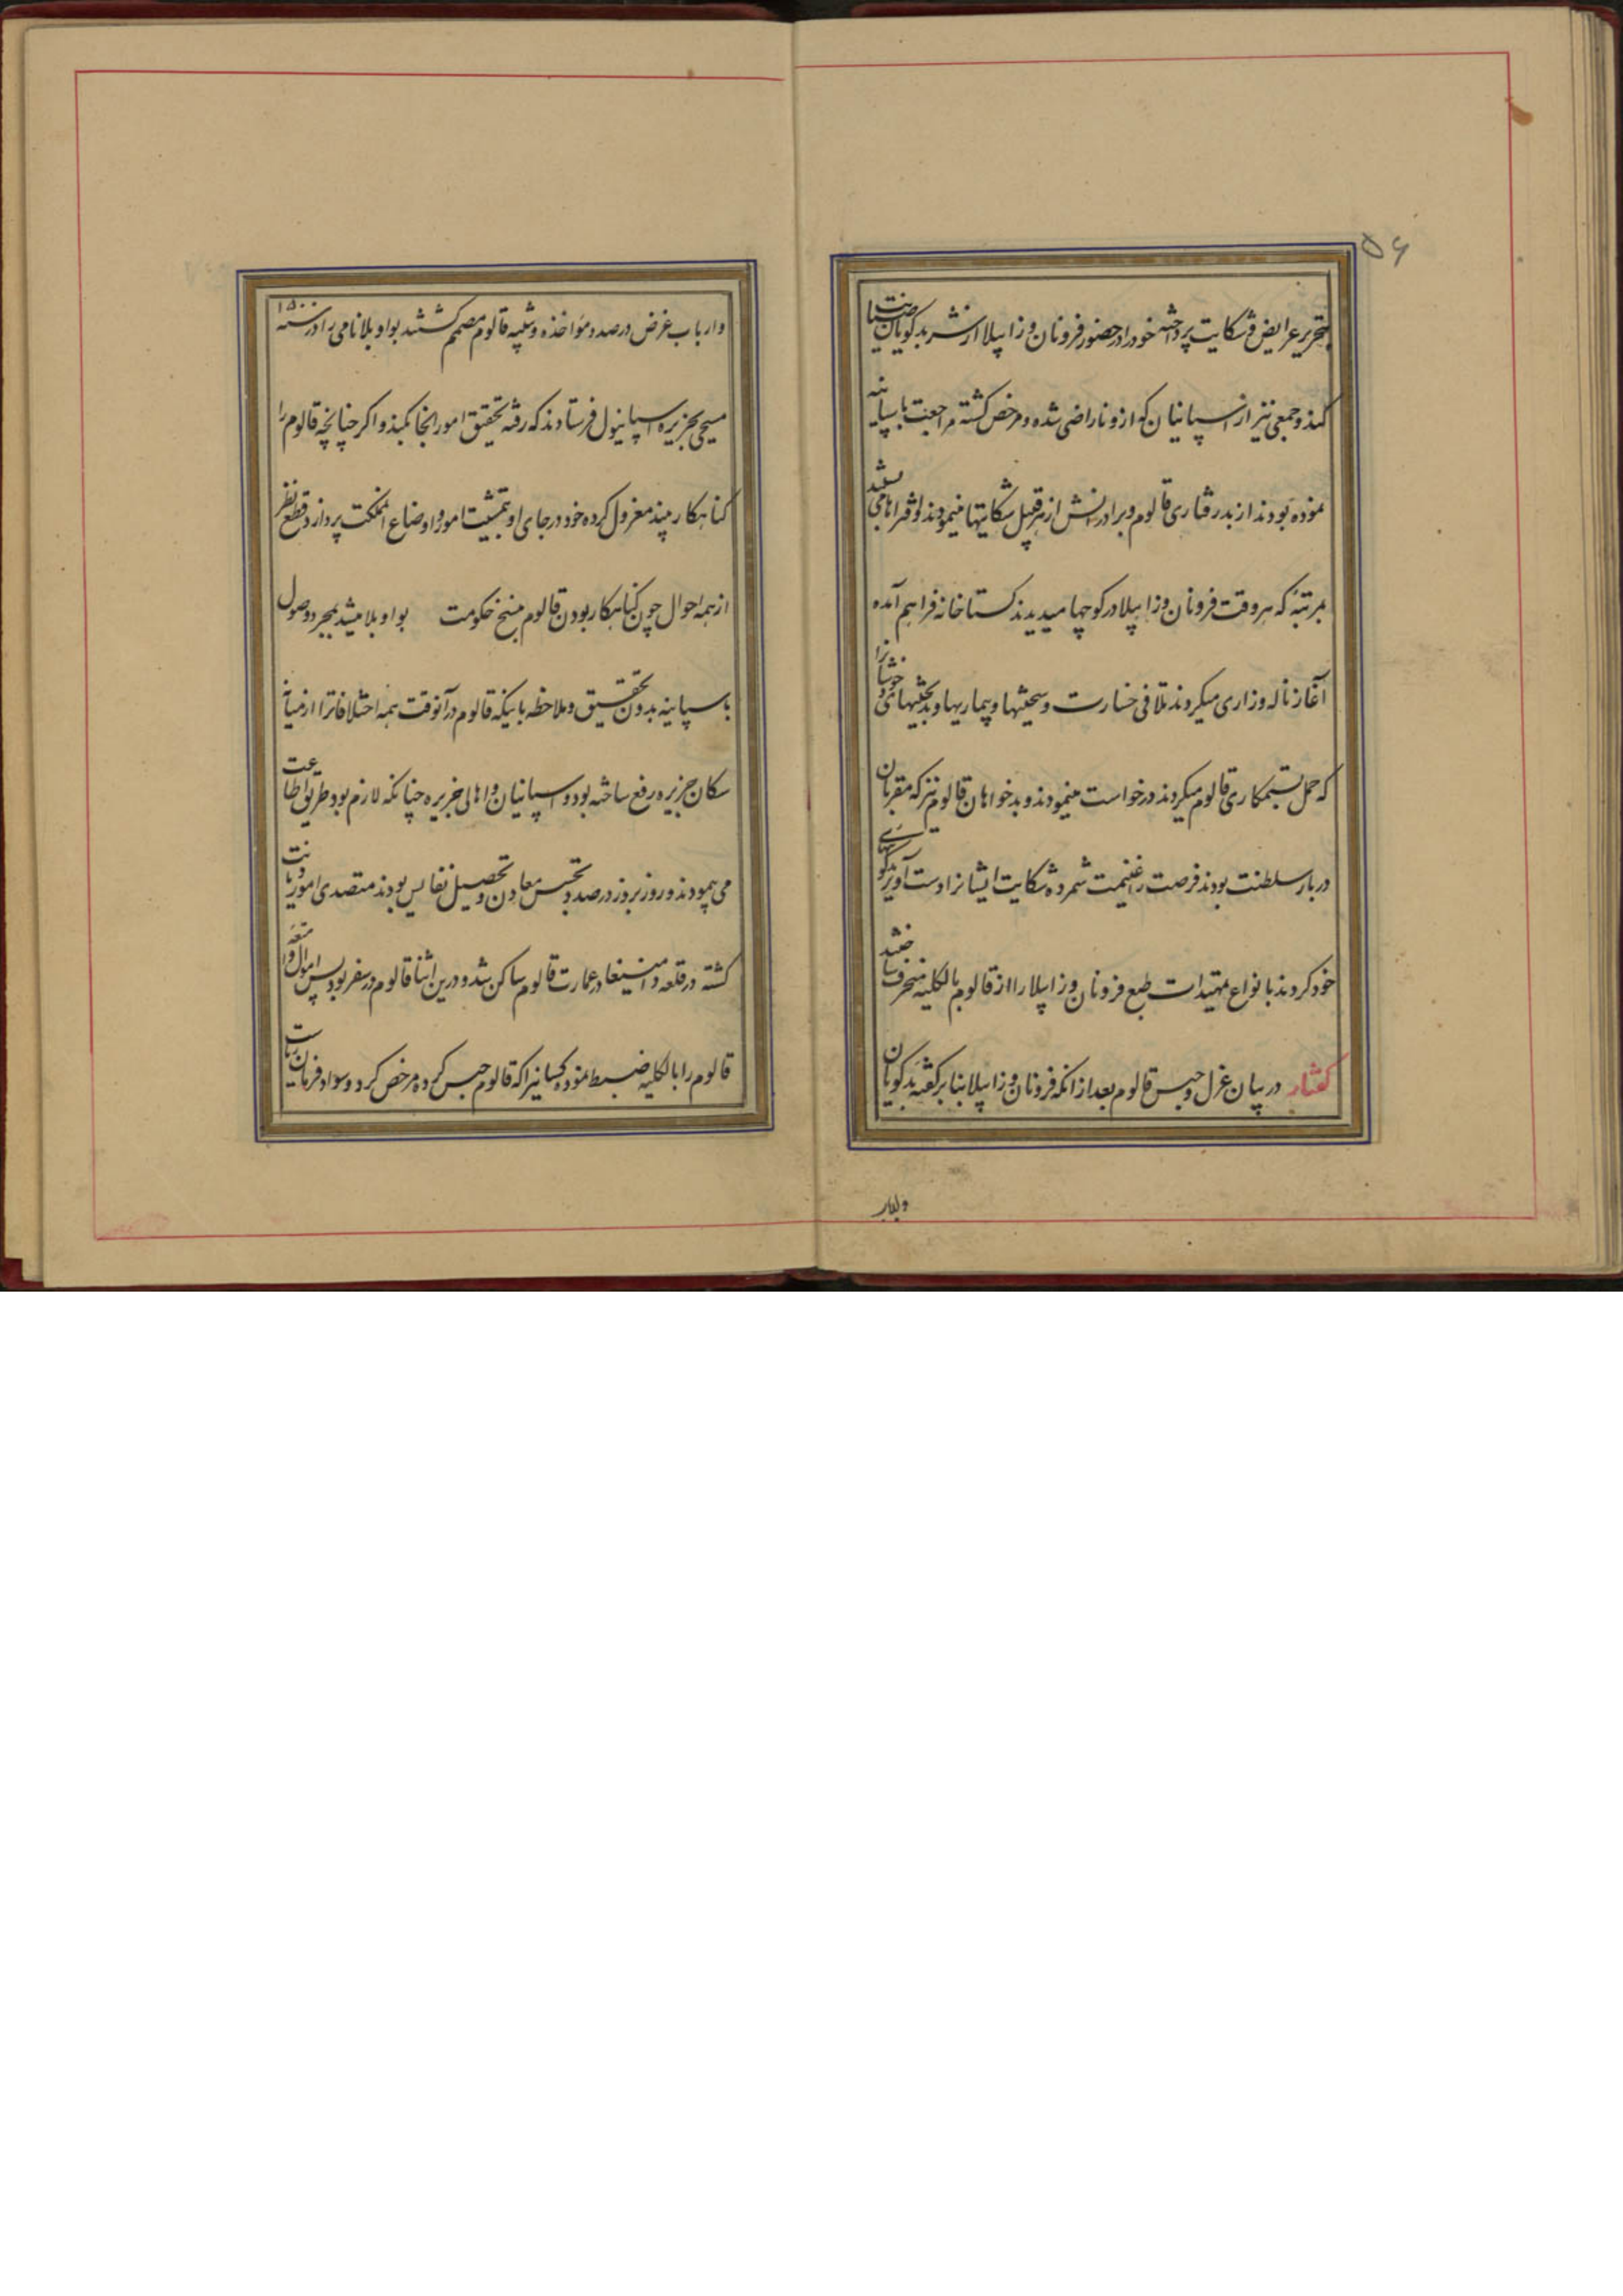 ۵۶
بتحریر عرایض و شکایت پرداخته خود را در حضور فرونان و زابیلا از نشر بدگویان صیانت
کنند و جمعی نیز از اسپانیان که ازو ناراضی شده و مرخص گشته مراجعت باسپانیه
نموده بودند از بدرفتاری قالوم و برادرانش از هر قبیل شکایتها مینمودند
بمرتبهٔ که هر وقت فرونان و زابیلا در کوچها میدیدند کستاخانه فراهم آمده
آغاز ناله و زاری میکردند تلافی خسارت و سختیها و بیماریها و بدبختیهای خودشانرا
که حمل بستمکاری قالوم میکردند درخواست مینمودند و بدخواهان قالوم نیز که مقربان
دربار سلطنت بودند فرصت را غنیمت شمرده شکایت ایشانرا دست آویز بدگوییهای
خود کردند بانواع تمهیدات طبع فرونان و زابیلا را از قالوم بالکلیه منحرف ساختند
کفتار در بیان عزل و حبس قالوم بعد از انکه فرونان و زابیلا بنا بر کفتهٔ بدکویان
و ارباب غرض در صدد مؤاخذه و تنبیه قالوم مصمم کشتند بواوبلا نامی را در سنه ۱۵۰۰
مسیحی بجزیره اسپانیول فرستادند که رفته تحقیق امور انجا بکند و اکر چنانچه قالوم را
کناهکار بیند معزول کرده خود در جای او بتمشیت امور و اوضاع انمملکت پردازد قطع نظر
از همه احوال چون کناهکار بودن قالوم منتج حکومت بواوبلا میشد بمجرد وصول
باسپانیه بدون تحقیق و ملاحظه باینکه قالوم در آنوقت همه اختلافاترا از میانهٔ
سکان جزیره رفع ساخته بود و اسپانیان و اهالی جزیره چنانکه لازم بود طریق اطاعت
می پیمودند و روز بروز در صدد تجسس معادن و تحصیل نفایس بودند متصدی امور
کشته در قلعه دامنیغا در عمارت قالوم ساکن شد و درین اثنا قالوم در سفر بود پس اموال و امتعهٔ
قالوم را بالکلیه ضبط نموده کسانیرا که قالوم حبس کرده مرخص کرد و سواد فرمان ریاست